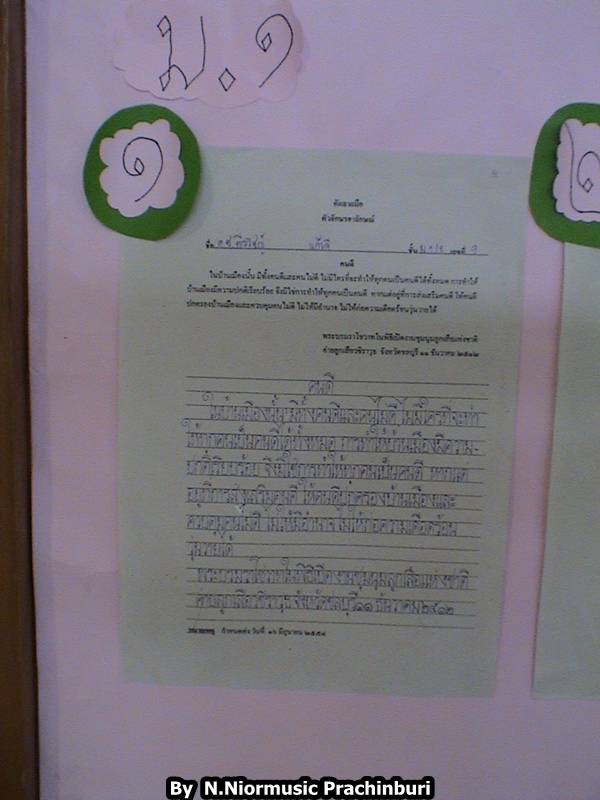 ม.๑
๑
๒
คัดลายมือ
ตัวอักษรอาลักษณ์
ชื่อ ด.ช. ชั้น ม. เลขที่ ๑
คนดี
ในบ้านเมืองนั้น มีทั้งคนดีและคนไม่ดี ไม่มีใครที่จะทำให้ทุกคนเป็นคนดีได้ทั้งหมด การทำให้
บ้านเมืองมีความปกติเรียบร้อย จึงมิใช่การทำให้ทุกคนเป็นคนดี หากแต่อยู่ที่การส่งเสริมคนดี ให้คนดี
ปกครองบ้านเมืองและควบคุมคนไม่ดี ไม่ให้มีอำนาจ ไม่ให้ก่อความเดือดร้อนวุ่นวายได้
พระบรมราโชวาทในพิธีเปิดงานชุมนุมลูกเสือแห่งชาติ
ค่ายลูกเสือวชิราวุธ จังหวัดชลบุรี ๑๑ ธันวาคม ๒๕๑๒
คนดี
ในบ้านเมืองนั้น มีทั้งคนดีและคนไม่ดี ไม่มีใครที่จะทำ
ให้ทุกคนเป็นคนดีได้ทั้งหมด การทำให้บ้านเมืองมีความ-
ปกติเรียบร้อย จึงมิใช่การทำให้ทุกคนเป็นคนดี หากแต่
อยู่ที่การส่งเสริมคนดี ให้คนดีปกครองบ้านเมืองและ
ควบคุมคนไม่ดี ไม่ให้มีอำนาจ ไม่ให้ก่อความเดือดร้อน
วุ่นวายได้
พระบรมราโชวาทในพิธีเปิดงานชุมนุมลูกเสือแห่งชาติ
ค่ายลูกเสือวชิราวุธ จังหวัดชลบุรี ๑๑ ธันวาคม ๒๕๑๒
หมายเหตุ กำหนดส่ง วันที่ ๑๖ มิถุนายน ๒๕๕๔
By N.Niormusic Prachinburi